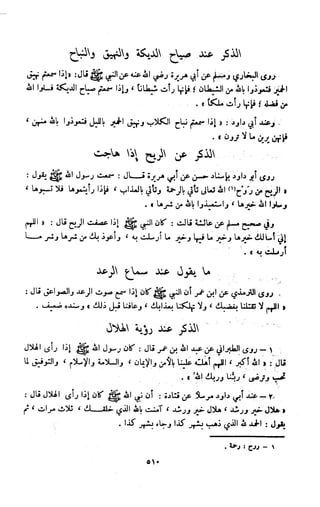 الذكر عند صياح الديكة والنهيق والنباح
روى البخاري ومسلم عن أبي هريرة رضي الله عنه عن النبي ﷺ قال: «إذا سمعتم نهيق
الحمير فتعوذوا بالله من الشيطان؛ فإنها رأت شيطاناً، وإذا سمعتم صياح الديكة فسلوا الله
من فضله؛ فإنها رأت ملكاً».
وعند أبي داود: «إذا سمعتم نباح الكلاب ونهيق الحمير بالليل فتعوذوا بالله منهن،
فإنهن يرين ما لا ترون».
الذكر عن الريح إذا هاجت
روى أبو داود بإسناد حسن عن أبي هريرة قال: سمعت رسول الله ﷺ يقول:
«الريح من رَوْح (١) الله تعالى تأتي بالرحمة وتأتي بالعذاب، فإذا رأيتموها فلا تسبوها،
وسلوا الله خيرها، واستعيذوا بالله من شرها».
وفي صحيح مسلم عن عائشة قالت: كان النبي ﷺ إذا عصفت الريح قال: «اللهم
إني أسألك خيرها وخير ما فيها وخير ما أرسلت به، وأعوذ بك من شرها وشر ما
أرسلت به».
ما يقول عند سماع الرعد
روى الترمذي عن ابن عمر أن النبي ﷺ كان إذا سمع صوت الرعد والصواعق قال:
«اللهم لا تقتلنا بغضبك، ولا تهلكنا بعذابك، وعافنا قبل ذلك» وسنده ضعيف.
الذكر عند رؤية الهلال
١ - روى الطبراني عن عبد الله بن عمر قال: كان رسول الله ﷺ إذا رأى الهلال
قال: «الله أكبر، اللهم أهله علينا بالأمن والإيمان، والسلامة والإسلام، والتوفيق لما
تحب وترضى، ربنا وربك الله».
٢ - عند أبي داود مرسلاً عن قتادة: أن نبي الله ﷺ كان إذا رأى الهلال قال:
«هلال خير ورشد، هلال خير ورشد، آمنت بالله الذي خلقك، ثلاث مرات، ثم
يقول: الحمد لله الذي ذهب بشهر كذا وجاء بشهر كذا.
١ - روح: رحمة.
٥١٠